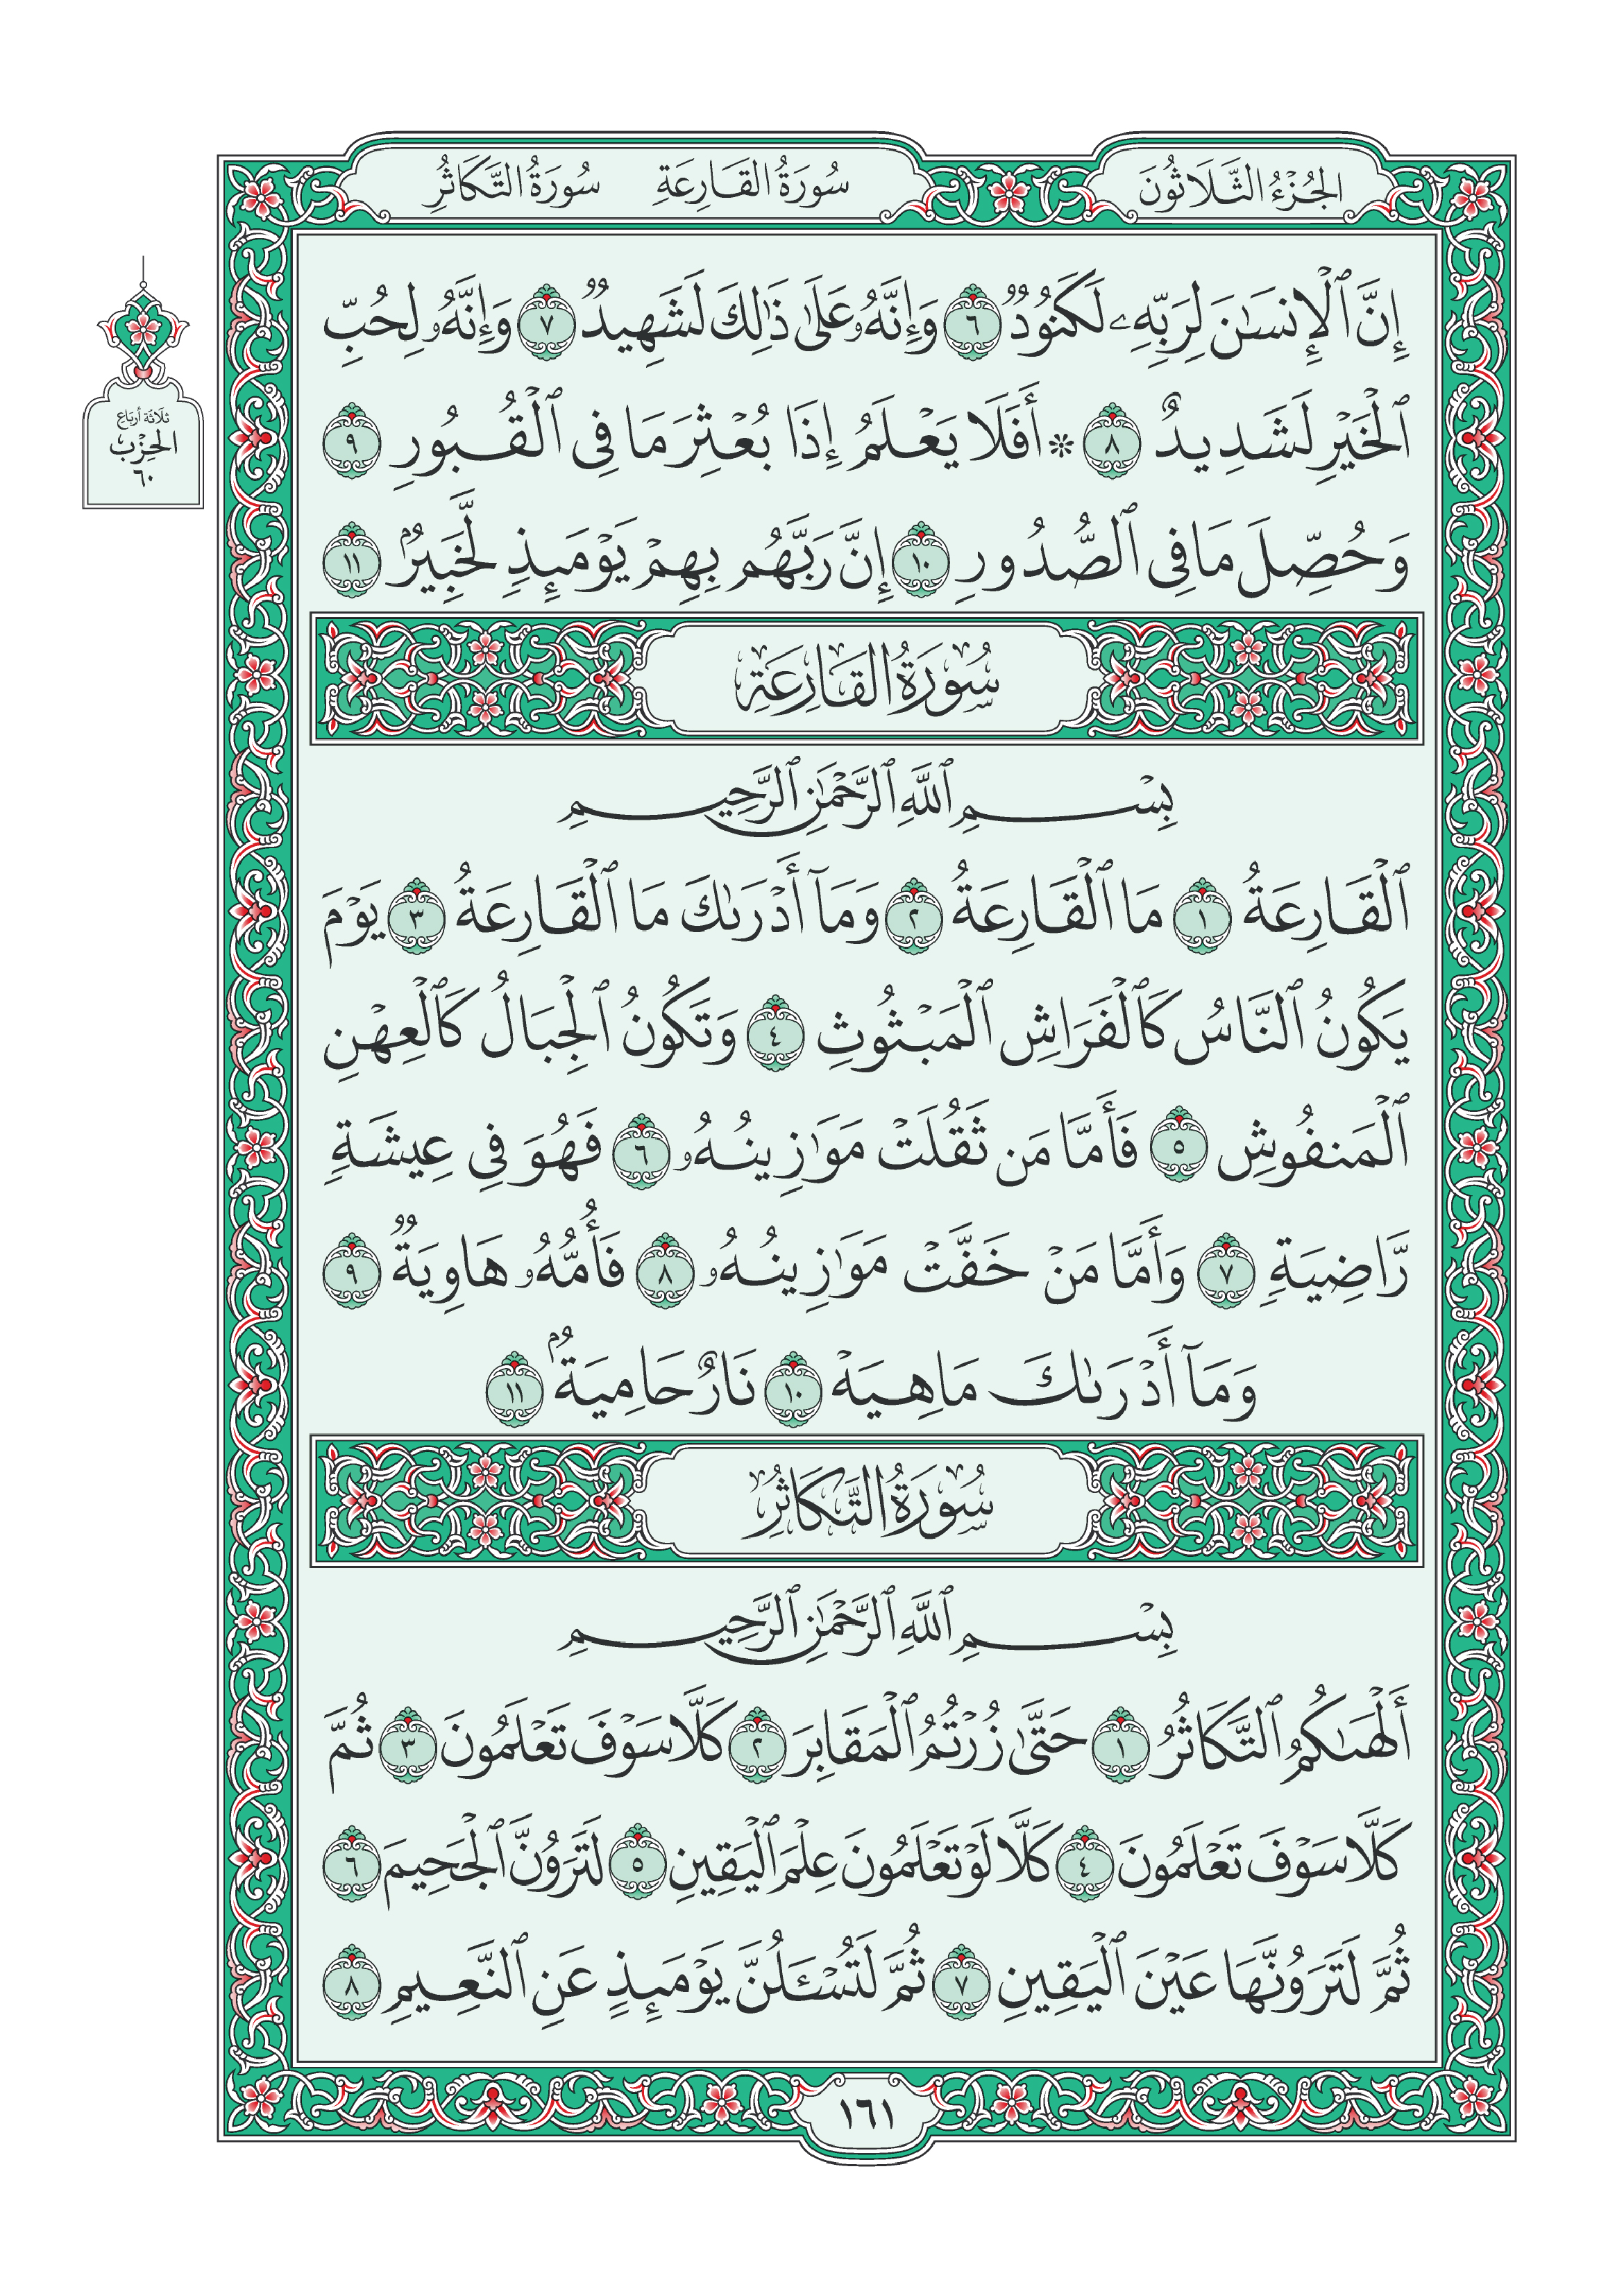 الجُزْءُ الثَّلَاثُونَ
سُورَةُ القَارِعَةِ سُورَةُ التَّكَاثُرِ
إِنَّ ٱلْإِنسَٰنَ لِرَبِّهِۦ لَكَنُودٌ ٦ وَإِنَّهُۥ عَلَىٰ ذَٰلِكَ لَشَهِيدٌ ٧ وَإِنَّهُۥ لِحُبِّ
ٱلْخَيْرِ لَشَدِيدٌ ٨ ۞ أَفَلَا يَعْلَمُ إِذَا بُعْثِرَ مَا فِى ٱلْقُبُورِ ٩
ثلَاثَة أربَاع
الحِزْب
٦٠
وَحُصِّلَ مَا فِى ٱلصُّدُورِ ١٠ إِنَّ رَبَّهُم بِهِمْ يَوْمَئِذٍ لَّخَبِيرٌۢ ١١
سُورَةُ القَارِعَةِ
بِسْمِ ٱللَّهِ ٱلرَّحْمَٰنِ ٱلرَّحِيمِ
ٱلْقَارِعَةُ ١ مَا ٱلْقَارِعَةُ ٢ وَمَآ أَدْرَىٰكَ مَا ٱلْقَارِعَةُ ٣ يَوْمَ
يَكُونُ ٱلنَّاسُ كَٱلْفَرَاشِ ٱلْمَبْثُوثِ ٤ وَتَكُونُ ٱلْجِبَالُ كَٱلْعِهْنِ
ٱلْمَنفُوشِ ٥ فَأَمَّا مَن ثَقُلَتْ مَوَٰزِينُهُۥ ٦ فَهُوَ فِى عِيشَةٍ
رَّاضِيَةٍ ٧ وَأَمَّا مَنْ خَفَّتْ مَوَٰزِينُهُۥ ٨ فَأُمُّهُۥ هَاوِيَةٌ ٩
وَمَآ أَدْرَىٰكَ مَاهِيَهْ ١٠ نَارٌ حَامِيَةٌۢ ١١
سُورَةُ التَّكَاثُرِ
بِسْمِ ٱللَّهِ ٱلرَّحْمَٰنِ ٱلرَّحِيمِ
أَلْهَىٰكُمُ ٱلتَّكَاثُرُ ١ حَتَّىٰ زُرْتُمُ ٱلْمَقَابِرَ ٢ كَلَّا سَوْفَ تَعْلَمُونَ ٣ ثُمَّ
كَلَّا سَوْفَ تَعْلَمُونَ ٤ كَلَّا لَوْ تَعْلَمُونَ عِلْمَ ٱلْيَقِينِ ٥ لَتَرَوُنَّ ٱلْجَحِيمَ ٦
ثُمَّ لَتَرَوُنَّهَا عَيْنَ ٱلْيَقِينِ ٧ ثُمَّ لَتُسْـَٔلُنَّ يَوْمَئِذٍ عَنِ ٱلنَّعِيمِ ٨
١٦١